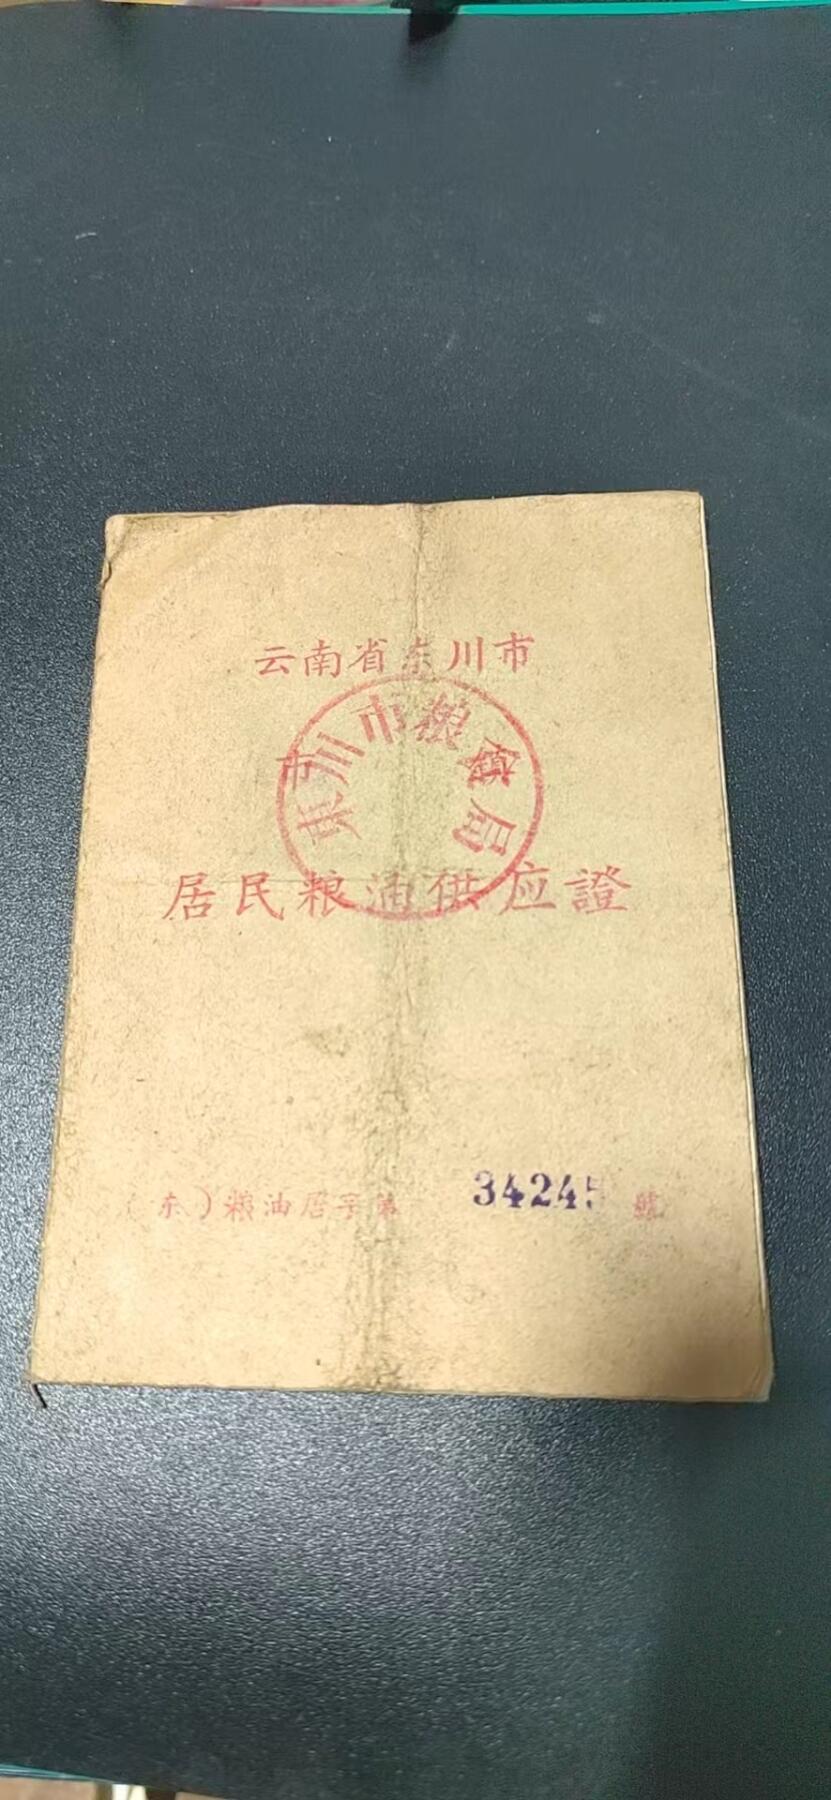 云南省东川市
東川市粮食局
市 镇
居民粮油供应證
东）粮油居字第 34245 號